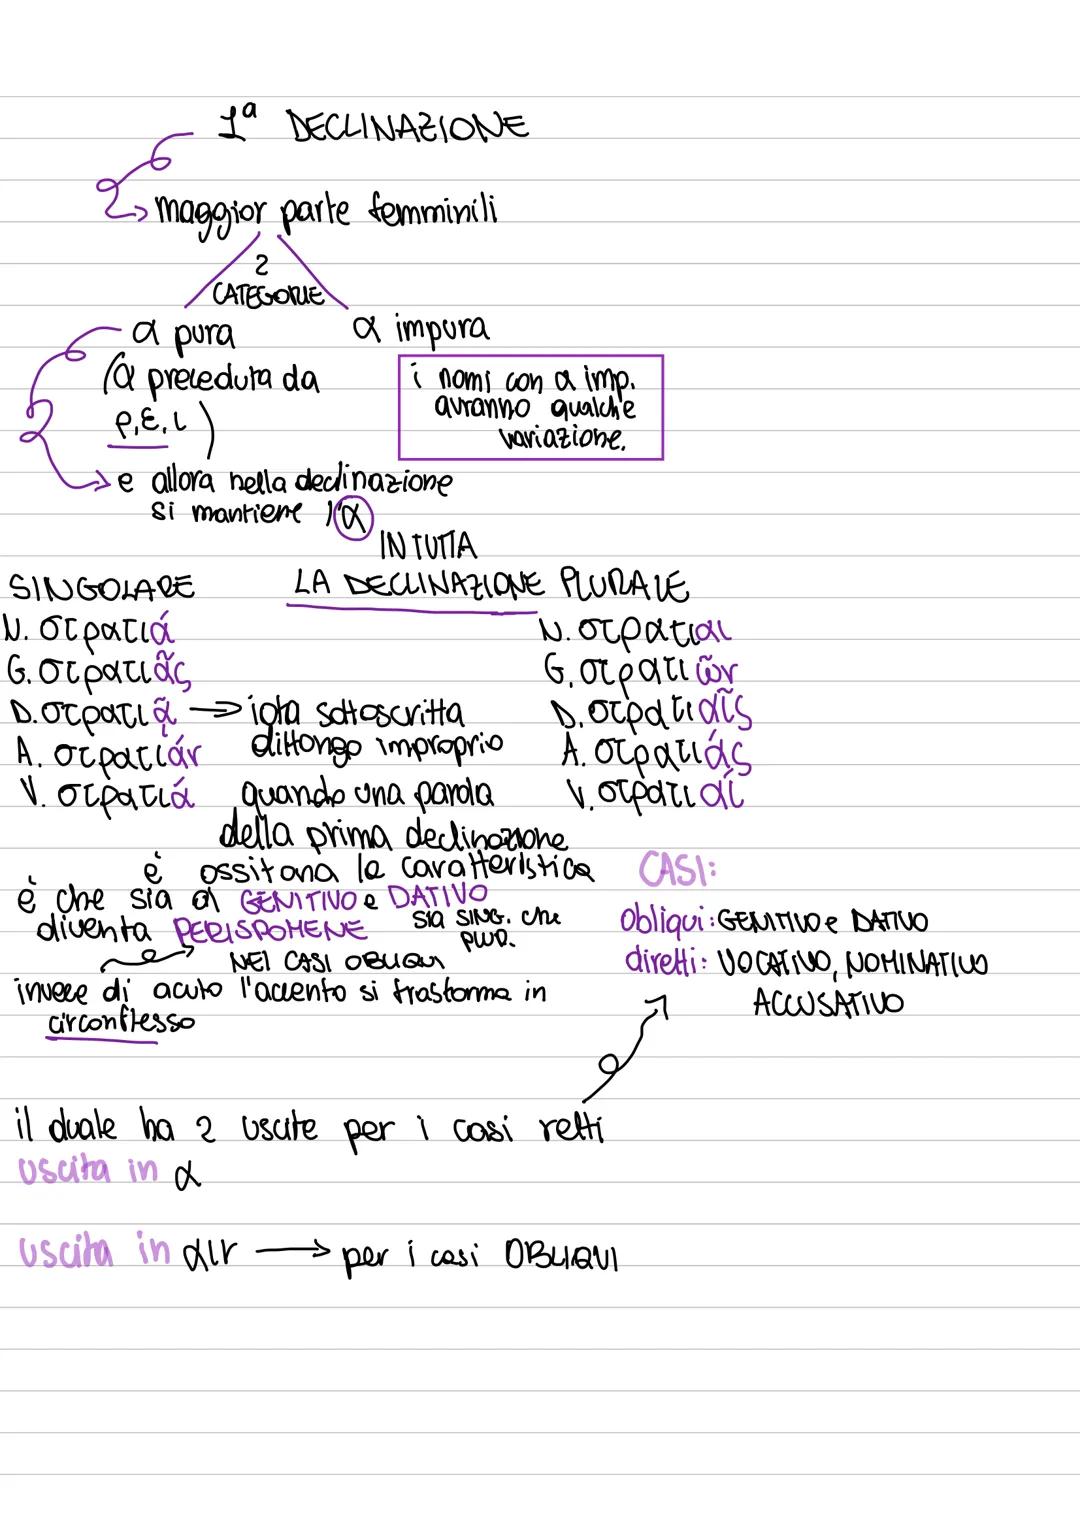 1ª DECLINAZIONE
maggior parte femminili
2
CATEGORIE
α pura
α impura
(α preceduta da
ρ, ε, ι )
i nomi con α imp.
avranno qualche
variazione.
e allora nella declinazione
si mantiene l'α
IN TUTTA
LA DECLINAZIONE
SINGOLARE
N. στρατιά
G. στρατιᾶς
D. στρατιᾷ → iota sottoscritta
dittongo improprio
A. στρατιάν
V. στρατιά
PLURALE
N. στρατιαι
G. στρατιῶν
D. στρατιαῖς
A. στρατιάς
V. στρατιαί
quando una parola
della prima declinazione
è ossitona la caratteristica
è che sia al GENITIVO e DATIVO
sia SING. che
PLUR.
diventa PERISPOMENE
NEI CASI OBLIQUI
invece di acuto l'accento si trasforma in
circonflesso
CASI:
obliqui: GENITIVO e DATIVO
diretti: VOCATIVO, NOMINATIVO
ACCUSATIVO
il duale ha 2 uscite per i casi retti
uscita in α
uscita in αιν → per i casi OBLIQUI